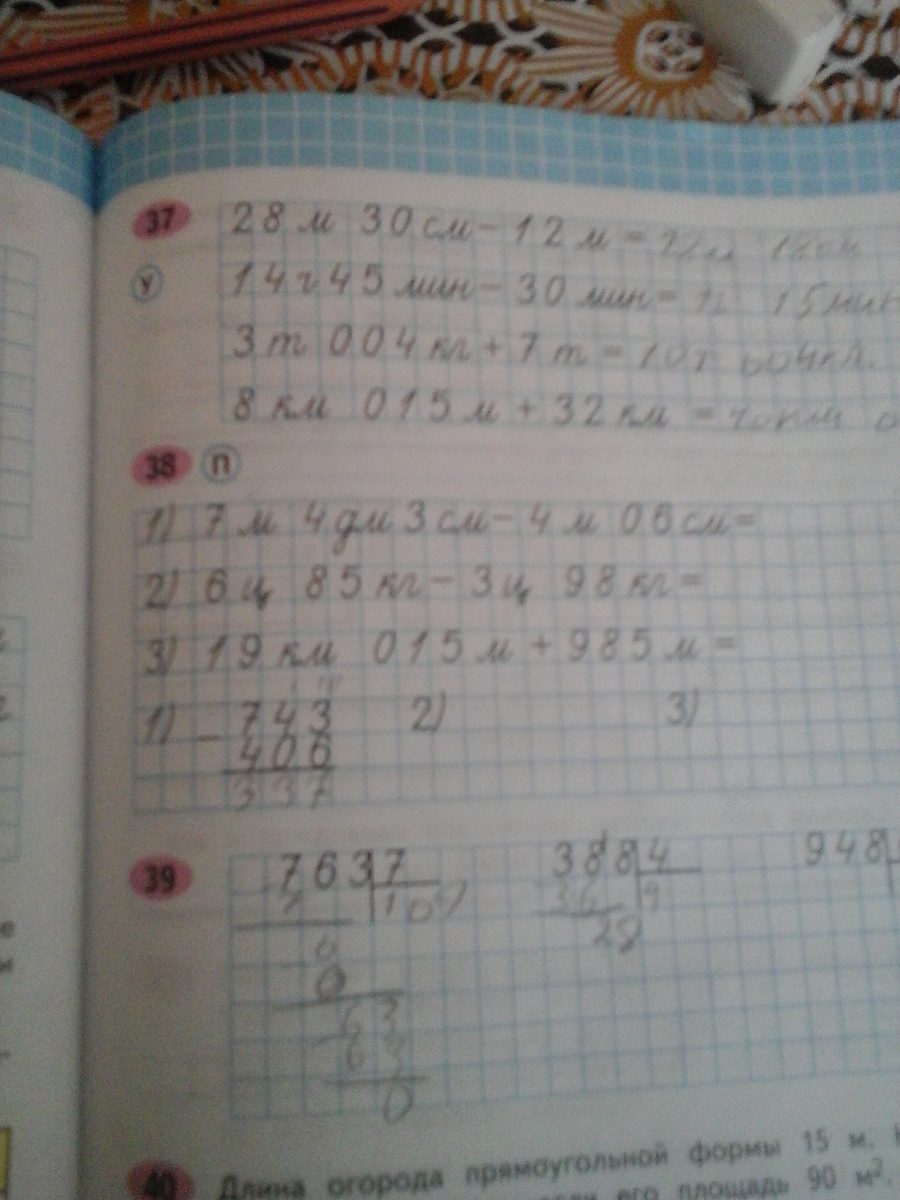 37 28 м 30 см - 12 м =
У 14 ч 45 мин - 30 мин = 15 мин
3 т 004 кг + 7 т = 10т 004кг.
8 км 015 м + 32 км = 40км
38 П
1) 7 м 4 дм 3 см - 4 м 06 см =
2) 6 ц 85 кг - 3 ц 98 кг =
3) 19 км 015 м + 985 м =
1) - 743 2) 3)
406
337
39 763 7 388 4 948
7 109 36 9
6 28
0
63
63
0
40 Длина огорода прямоугольной формы 15 м.
его площадь 90 м².